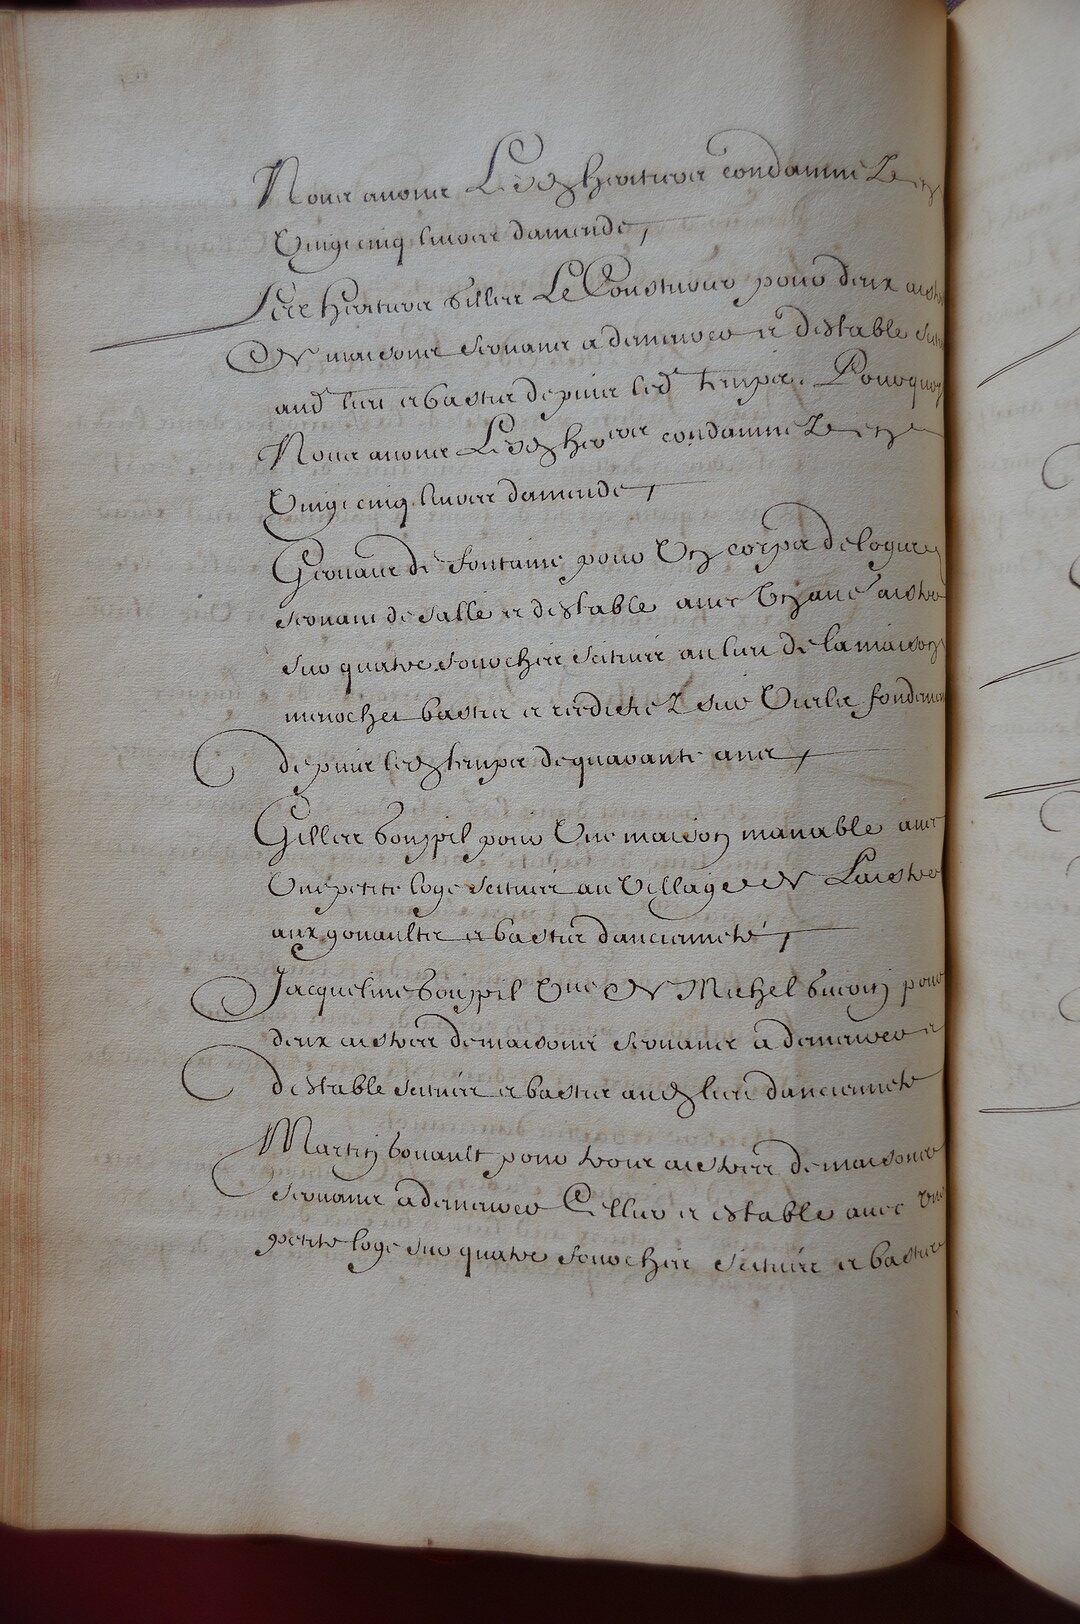 Nous avons Lesd heritiers condamné Z en
Vingt cinq livres damende,
Les heritiers Gilles Le Cousturier pour deux aistres
De maisons servans a demeurer et destable
aud lieu et bastis depuis led temps. Pourquoy
Nous avons Lesd hers condamné Z en
Vingt cinq livres damende,
Gervais de fontaine pour Un corps de logis
servant de salle et destable avec Un autre aistre
sur quatre fourches scituéz au lieu de la maison
bastis et redifiéz sur Vieilz fondemens
depuis led temps de quarante ans,
Gilles Goupil pour Une maison manable avec
Une petite loge scituéz au Village De Laistre
aux et bastis dancienneté,
Jacqueline Goupil Vve De Michel pour
deux aistres de maisons servans a demeurer et
destable scituéz et bastis aud lieu dancienneté
Martin pour trois aistres de maisons
servans a demeurer Cellier et estable avec Une
petite loge sur quatre fourches scituéz et bastis